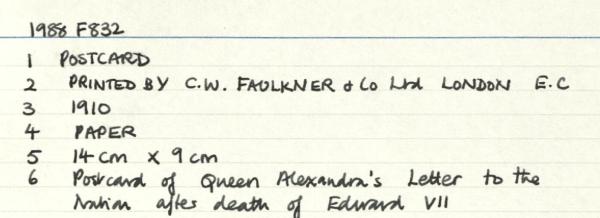 1988 F832
1 POSTCARD
2 PRINTED BY C.W. FAULKNER & Co Ltd LONDON E.C
3 1910
4 PAPER
5 14 cm x 9 cm
6 Postcard of Queen Alexandra's Letter to the
Nation after death of Edward VII